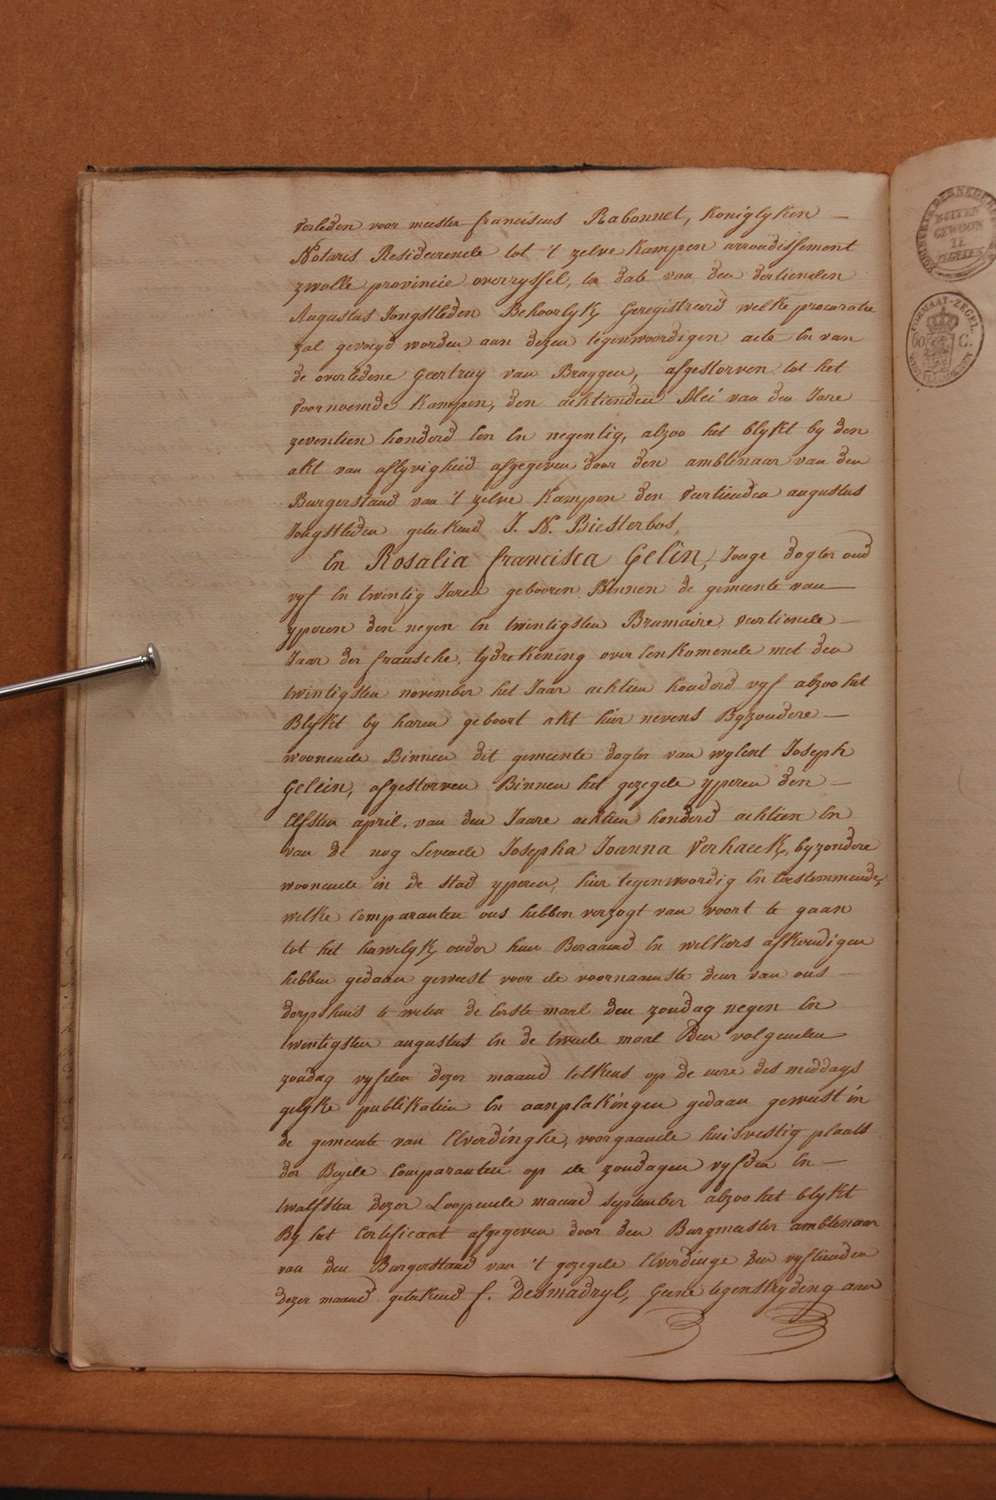 verleden voor meester franciscus Rabonnet, Koniglyken —
Notaris Residerende tot 't zelve Kampen arrondissement
zwolle provincie overryssel, in date van den dertienden
Augustus Jongstleden Behoorlyk Geregistreerd welke procuratie
zal gevoegd worden aan dezen tegenwoordigen acte En van
de overledene Geertruy van Bruggen, afgestorven tot het
voornoemde Kampen, den achtienden Mei van den Jare
zeventien honderd een En negentig, alzoo het blykt by den
akt van aflyvigheid afgegeven door den ambtenaar van den
Burgerstand van 't zelve Kampen den veertienden augustus
Jongstleden getekend J. N. Biesterbos,
En Rosalia francisca Gelein, Jonge dogter oud
vyf En twintig Jaren gebooren Binnen de gemeente van —
yperen den negen En twintigsten Brumaire veertiende —
Jaar der fransche tydrekening overeenkomende met den
twintigsten november het Jaar achtien honderd vyf alzoo het
Blykt by haren geboort akt hier nevens Byzondere —
woonende Binnen dit gemeente dogter van wylent Joseph
Gelein, afgestorven Binnen het gezegde yperen den —
Elfsten april, van den Jaare achtien honderd achtien En
van de nog Levende Josepha Joanna Verhaeck, byzondere
woonende in de stad yperen, hier tegenwoordig En toestemmende,
welke Comparanten ons hebben verzogt van voort te gaan
tot het huwelyk onder hun Beraamd En welkers afkondigen
hebben gedaan geweest voor de voornaamste deur van ons —
dorpshuis te weten de Eerste maal den zondag negen En
twintigsten augustus En de tweede maal Den volgenden —
zondag vyfden dezer maand telkens op de uure des middags
gelyke publikatien En aanplakingen gedaan geweest in
de gemeente van Elverdinghe, voorgaande huisvestig plaats
der Beyde Comparanten op de zondagen vyfden En —
twalfsten dezer Loopende maand september alzoo het blykt
By het Certificaat afgegeven door den Burgmeester ambtenaar
van den Burgerstand van 't gezegde Elverdinge den vyftienden
dezer maand getekend f. Desmadryl, Geene tegenstryding aan
BUITEN
GEWOON
TE
ZEGELEN
FORMAAT-ZEGEL
60 C.